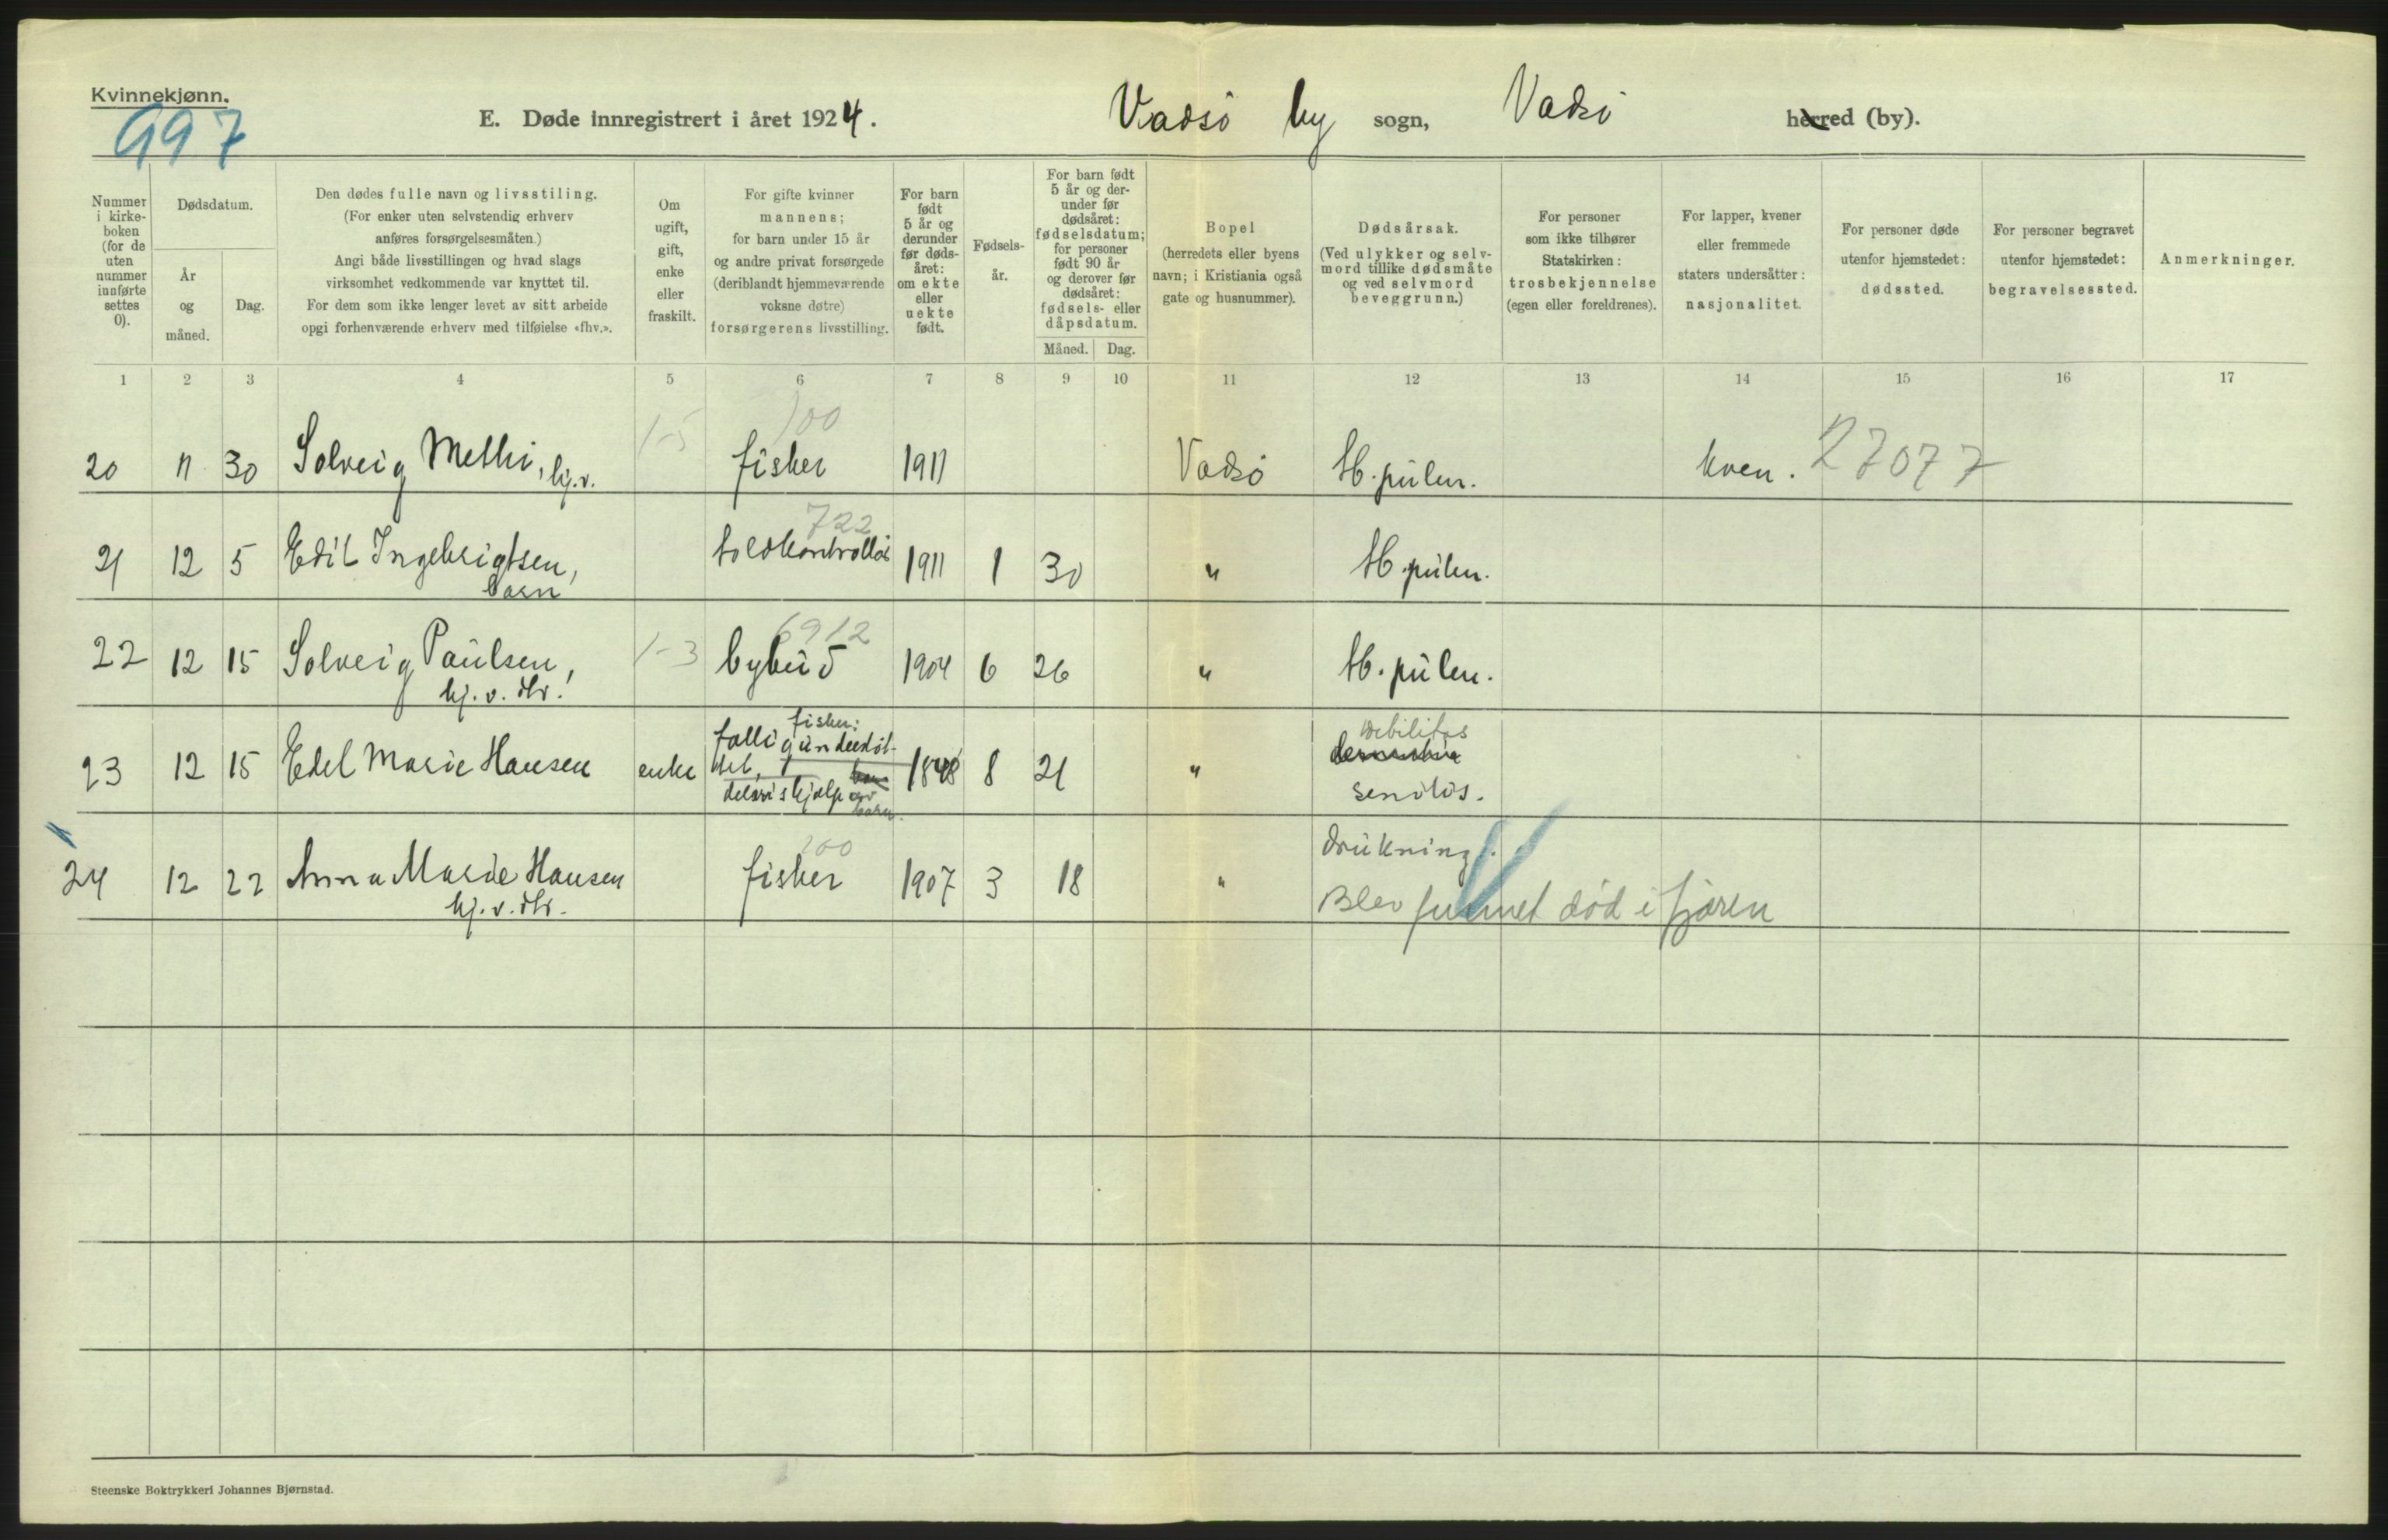 Kvinnekjønn.
997
E. Døde innregistrert i året 1924. Vadsö by sogn, Vadsö herred (by).
Nummer i kirke-boken (for de uten nummer innførte settes 0).
Dødsdatum.
År og måned.
Dag.
Den dødes fulle navn og livsstiling.
(For enker uten selvstendig erhverv
anføres forsørgelsesmåten.)
Angi både livsstillingen og hvad slags
virksomhet vedkommende var knyttet til.
For dem som ikke lenger levet av sitt arbeide
opgi forhenværende erhverv med tilføielse «fhv.».
Om
ugift,
gift,
enke
eller
fraskilt.
For gifte kvinner
mannens;
for barn under 15 år
og andre privat forsørgede
(deriblandt hjemmeværende
voksne døtre)
forsørgerens livsstilling.
For barn
født
5 år og
derunder
før døds-
året:
om ekte
eller
uekte
født.
Fødsels-
år.
For barn født
5 år og der-
under før
dødsåret:
fødselsdatum;
for personer
født 90 år
og derover før
dødsåret:
fødsels- eller
dåpsdatum.
Måned. Dag.
Bopel
(herredets eller byens
navn; i Kristiania også
gate og husnummer).
Dødsårsak.
(Ved ulykker og selv-
mord tillike dødsmåte
og ved selvmord
beveggrunn.)
For personer
som ikke tilhører
Statskirken:
trosbekjennelse
(egen eller foreldrenes).
For lapper, kvener
eller fremmede
staters undersåtter:
nasjonalitet.
For personer døde
utenfor hjemstedet:
dødssted.
For personer begravet
utenfor hjemstedet:
begravelsessted.
Anmerkninger.
1 2 3 4 5 6 7 8 9 10 11 12 13 14 15 16 17
20 11 30 Solveig Methi, hj.v. 1-5 100 fisker 1911 Vadsö tb. pulm. kven. 27077
21 12 5 Edit Ingebrigtsen, barn 722 toldkontrollör 1911 1 30 " tb. pulm.
22 12 15 Solveig Paulsen, hj.v.dtr. 1-3 6912 bybud 1904 6 26 " tb. pulm.
23 12 15 Edel Marie Hansen enke fisker; fattigunderstöt-
tet, delvis hjælp av barn. 1848 8 21 " debilitas
senilis.
24 12 22 Anna Marie Hansen hj.v.dtr. 200 fisker 1907 3 18 " drukning.
Blev funnet død i fjæren
Steenske Boktrykkeri Johannes Bjørnstad.